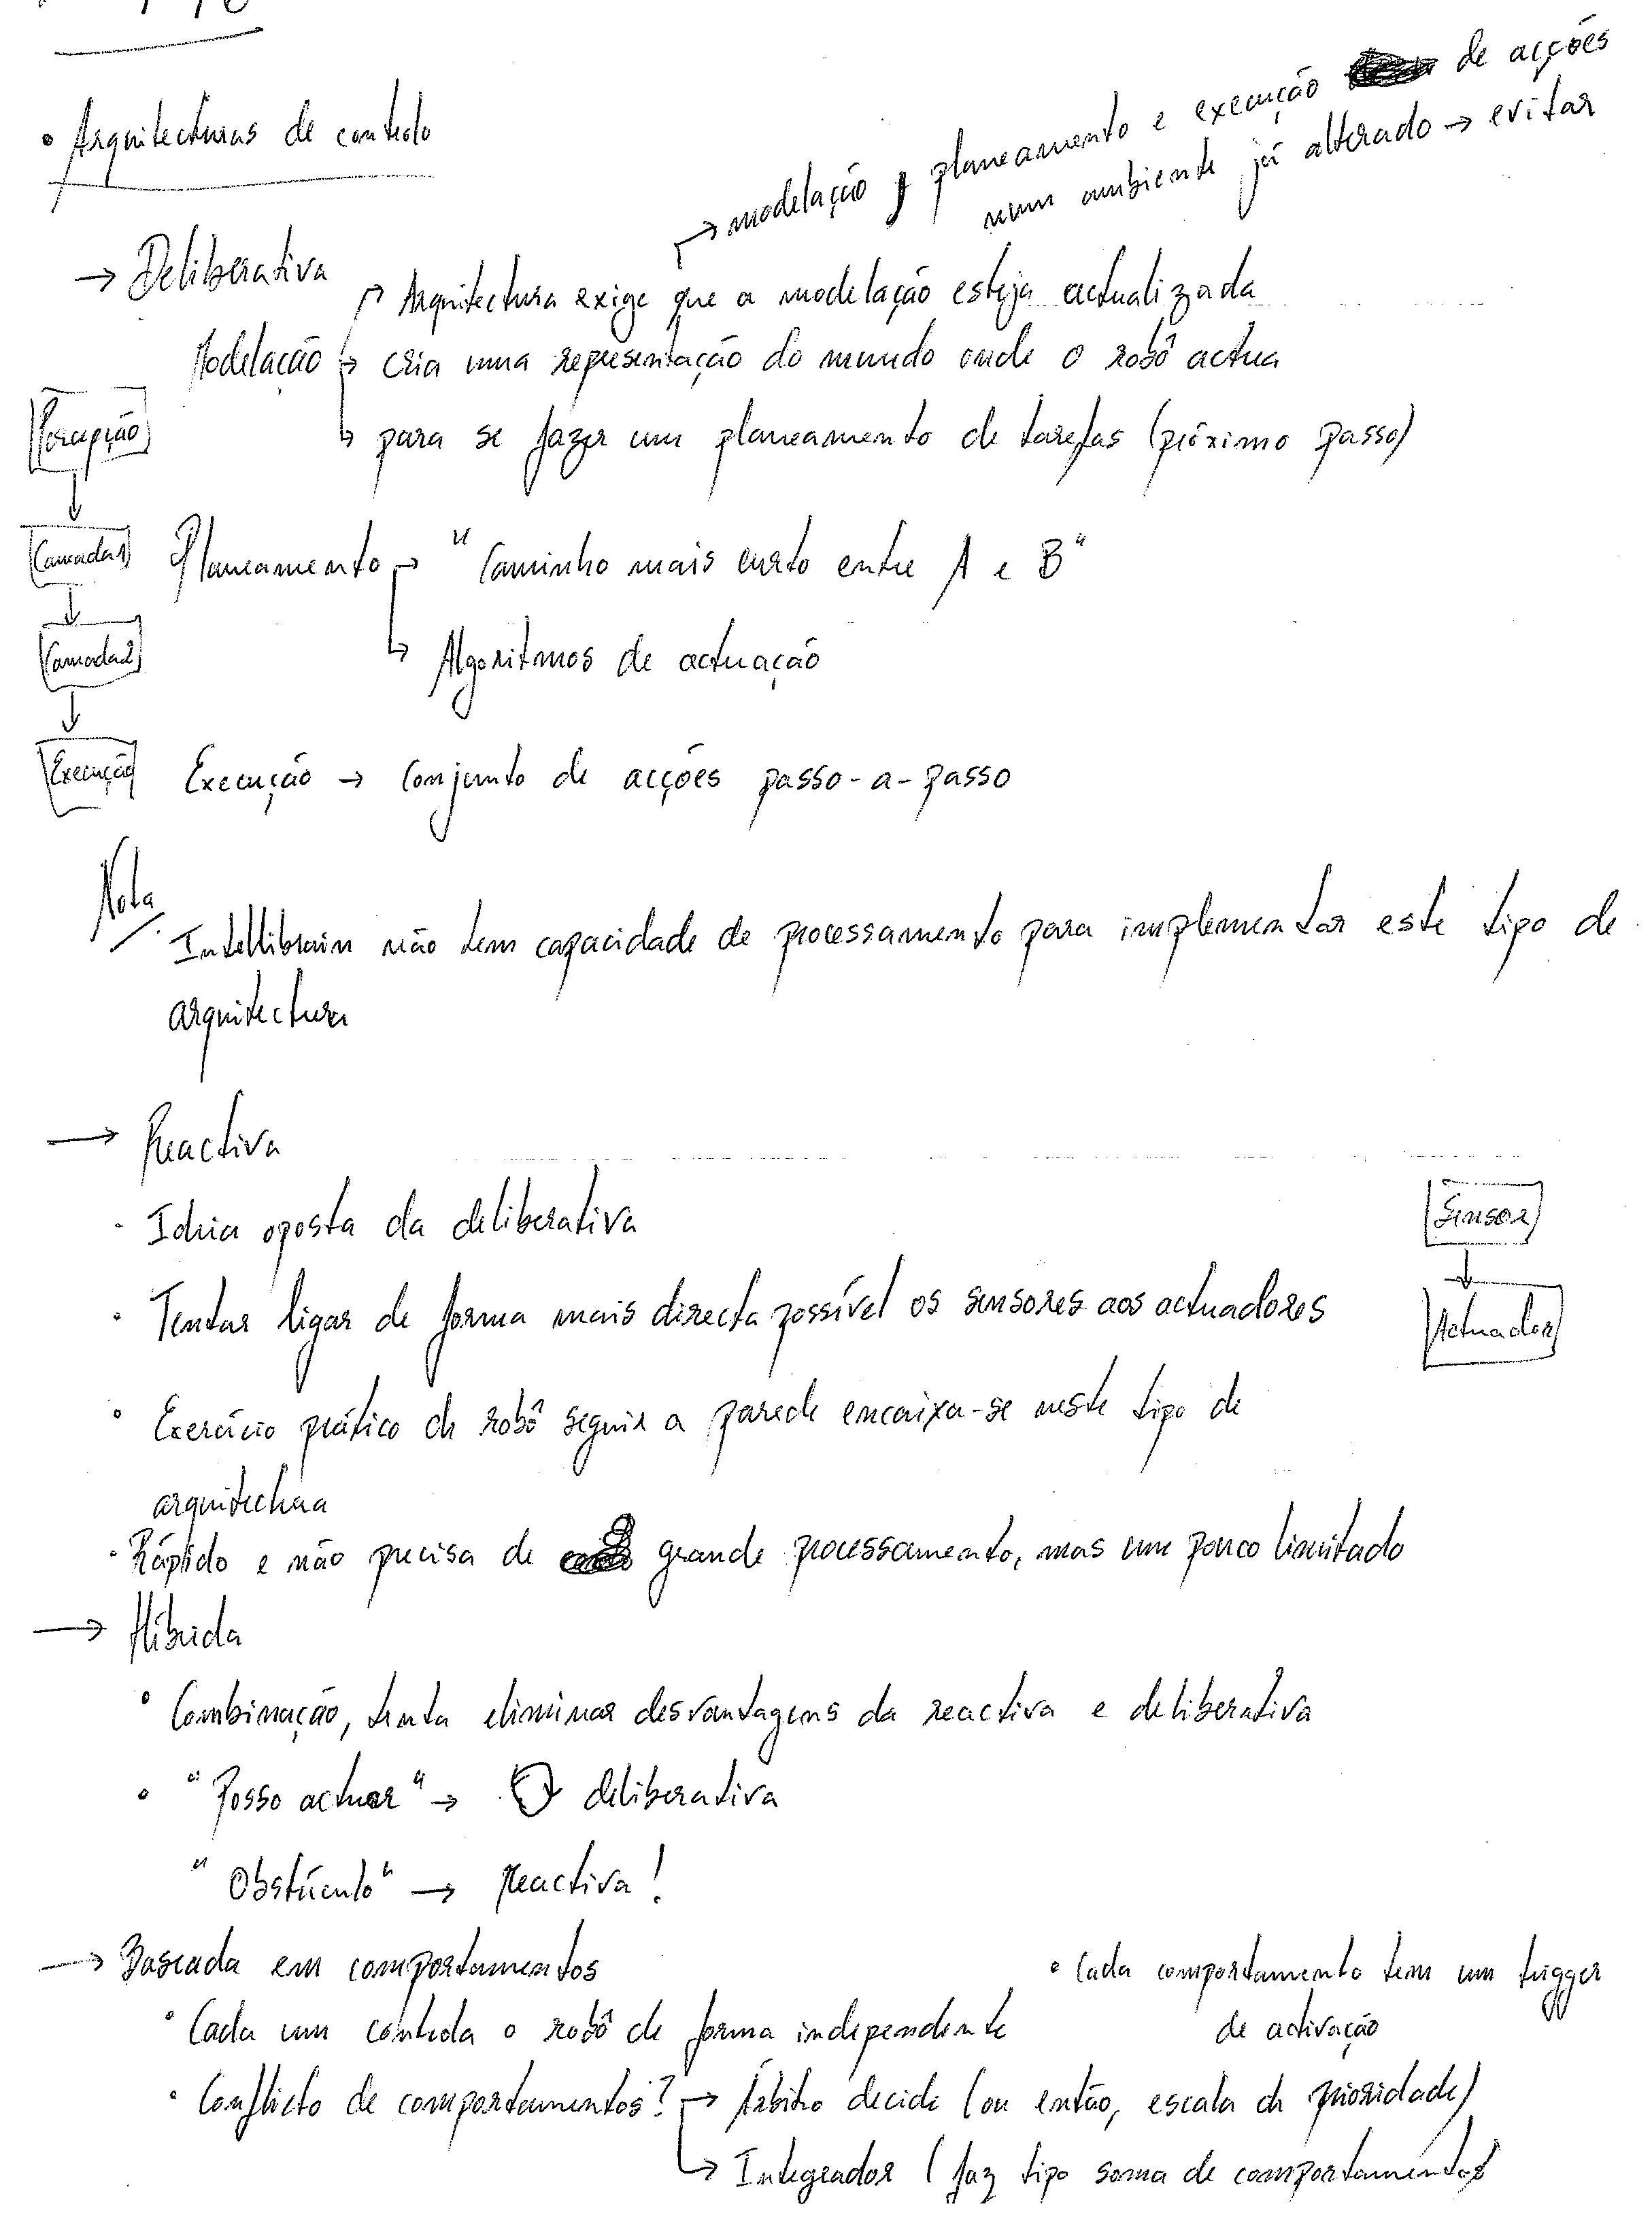 • Arquitecturas de controlo
→ modelação, planeamento e execução de acções
num ambiente já alterado → evitar
→ Deliberativa
→ Arquitectura exige que a modelação esteja actualizada
Modelação → cria uma representação do mundo onde o robô actua
→ para se fazer um planeamento de tarefas (próximo passo)
Percepção
Camada1
Planeamento → "Caminho mais curto entre A e B"
Camada2
→ Algoritmos de actuação
Execução
Execução → Conjunto de acções passo-a-passo
Nota
Intellibrain não tem capacidade de processamento para implementar este tipo de
arquitectura
→ Reactiva
· Ideia oposta da deliberativa
Sensor
· Tentar ligar de forma mais directa possível os sensores aos actuadores
Actuador
• Exercício prático de robô seguir a parede encaixa-se neste tipo de
arquitectura
· Rápido e não precisa de grande processamento, mas um pouco limitado
→ Híbrida
• Combinação, tenta eliminar desvantagens da reactiva e deliberativa
• "Posso actuar" → deliberativa
"Obstáculo" → Reactiva!
→ Baseada em comportamentos
• Cada comportamento tem um trigger
de activação
• Cada um controla o robô de forma independente
• Conflicto de comportamentos? → Árbitro decide (ou então, escala de prioridade)
→ Integrador (faz tipo soma de comportamentos)